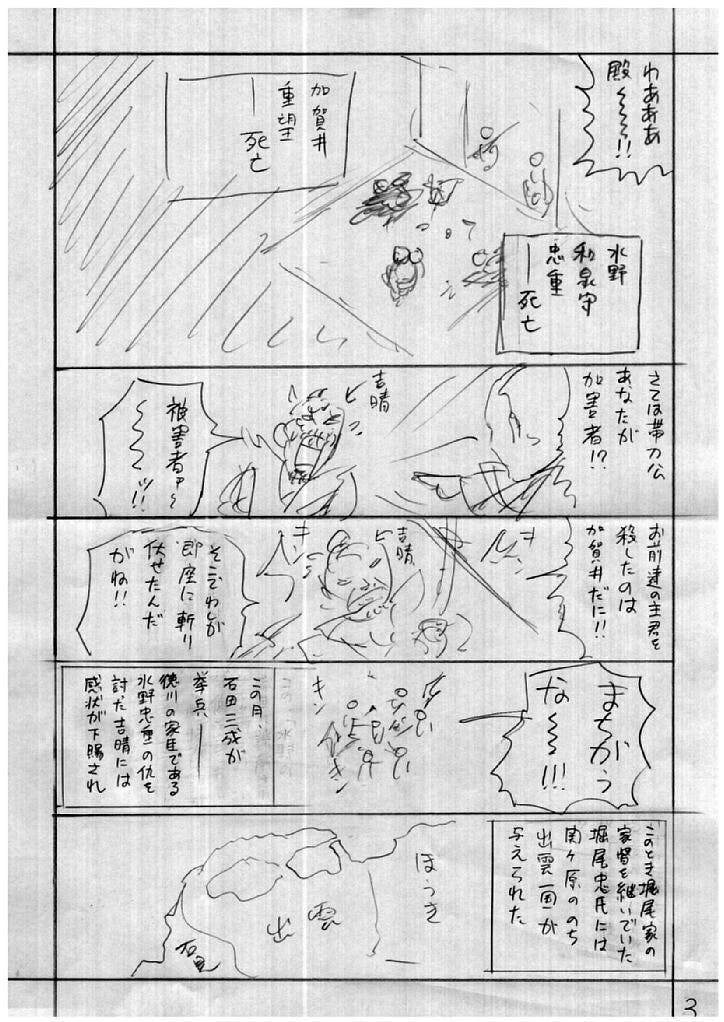 わあああ
殿～～～!!
水野
和泉守
忠重
―死亡
加賀井
重望
―死亡
さては帯刀公
あなたが
加害者!?
吉晴
ヒ
被害者ァ～
～～～ッ!!
お前達の主君を
殺したのは
加賀井だに!!
キン
吉晴
キン
そこでわしが
即座に斬り
伏せたんだ
がね!!
まちがう
な～～!!!
キン
キン
この月、
石田三成が
挙兵――
徳川の家臣である
水野忠重の仇を
討った吉晴には
感状が下賜され
このとき堀尾家の
家督を継いでいた
堀尾忠氏には
関ヶ原ののち
出雲一国が
与えられた
ほうき
出雲
石見
3